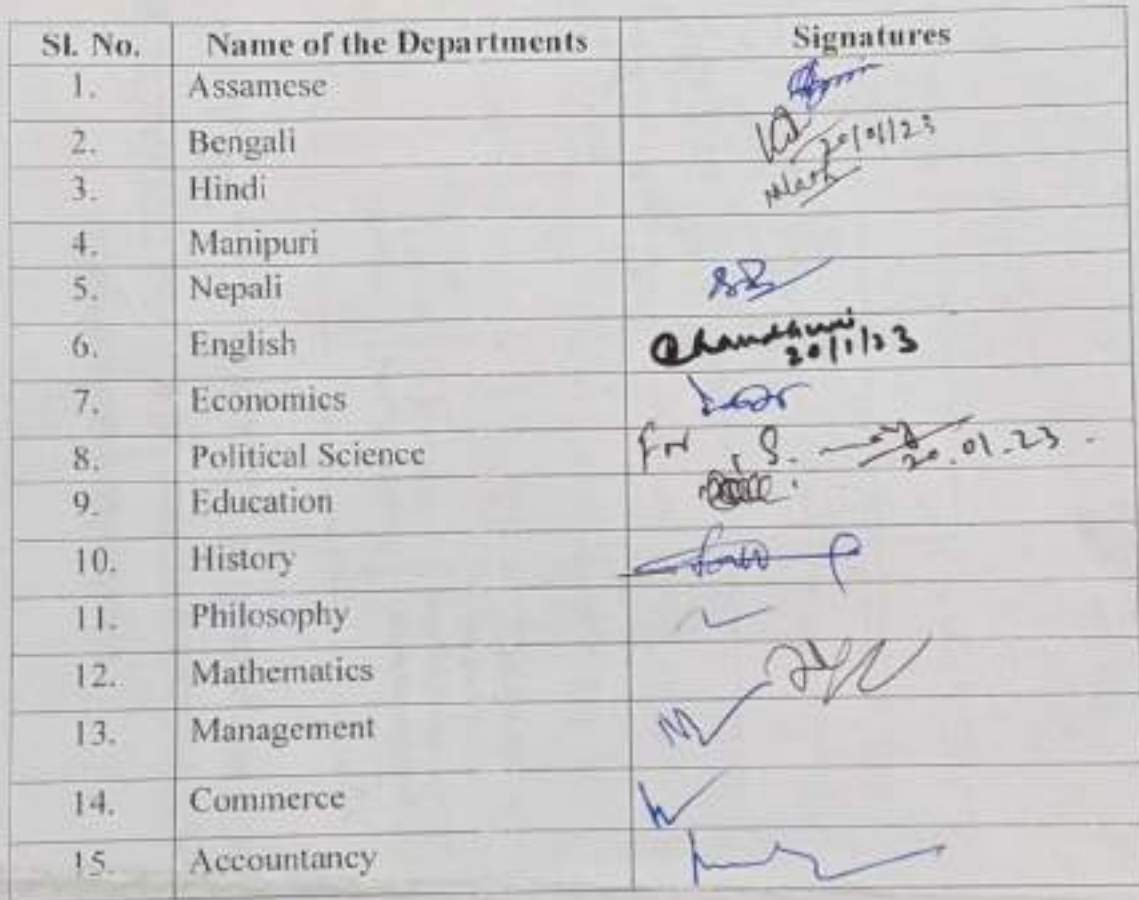 Sl. No. Name of the Departments Signatures
1. Assamese
2. Bengali 20/01/23
3. Hindi
4. Manipuri
5. Nepali
6. English Chaudhuri
20/1/23
7. Economics
8. Political Science For 20.01.23
9. Education
10. History
11. Philosophy
12. Mathematics
13. Management
14. Commerce
15. Accountancy